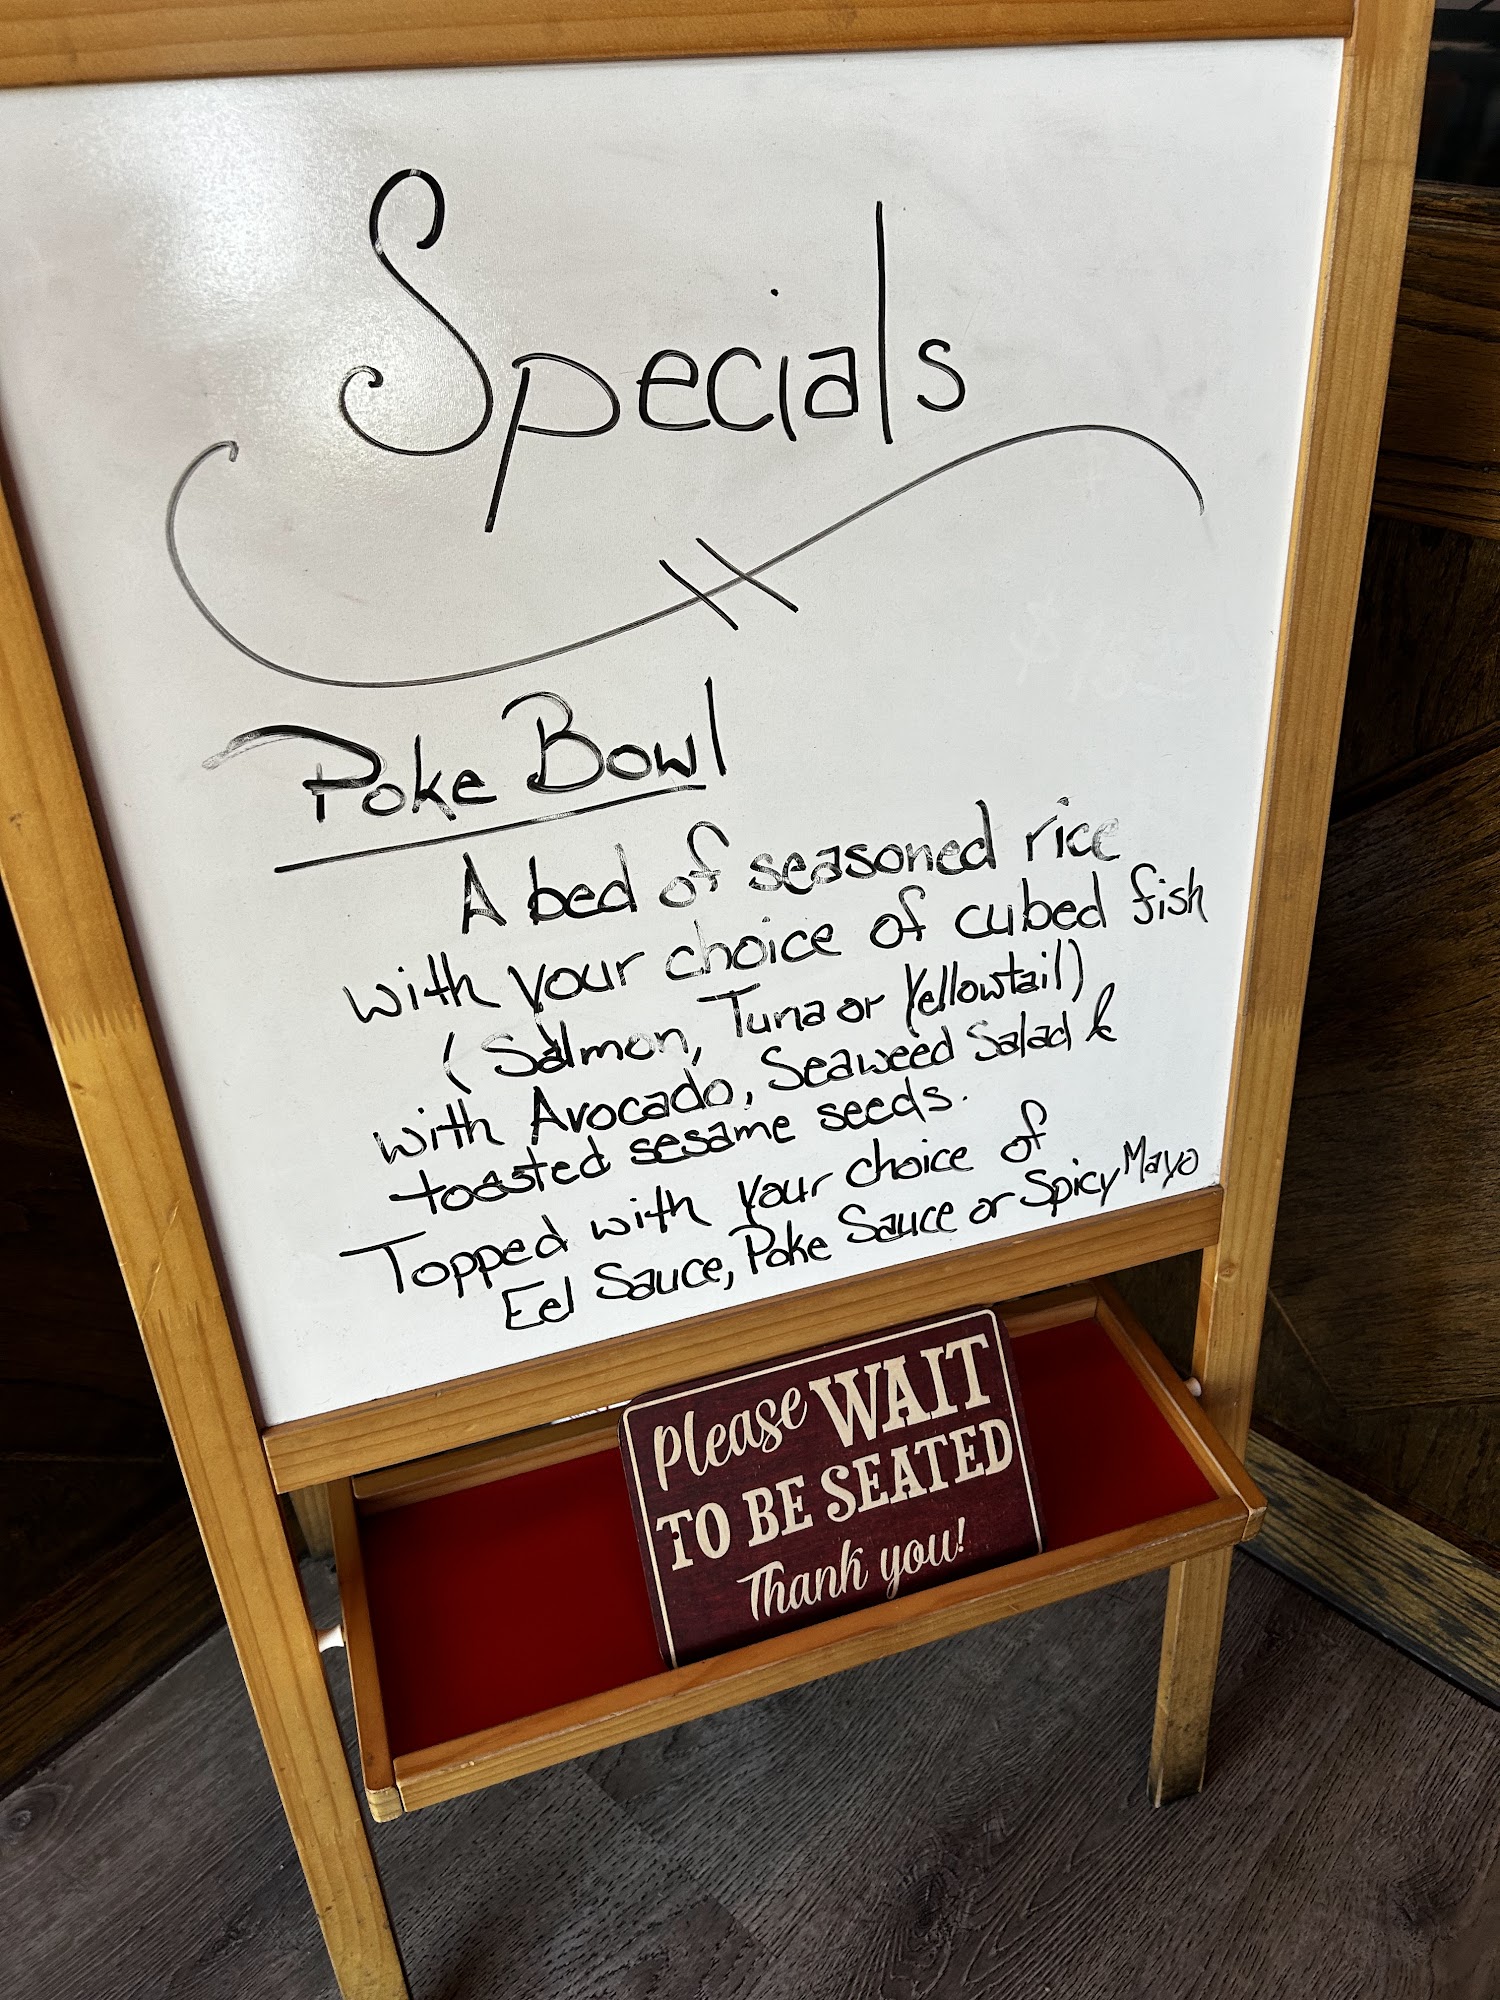 Specials
Poke Bowl
A bed of seasoned rice
with your choice of cubed fish
(Salmon, Tuna or Yellowtail)
with Avocado, Seaweed Salad &
toasted sesame seeds.
Topped with your choice of
Eel Sauce, Poke Sauce or Spicy Mayo
Please WAIT
TO BE SEATED
Thank you!